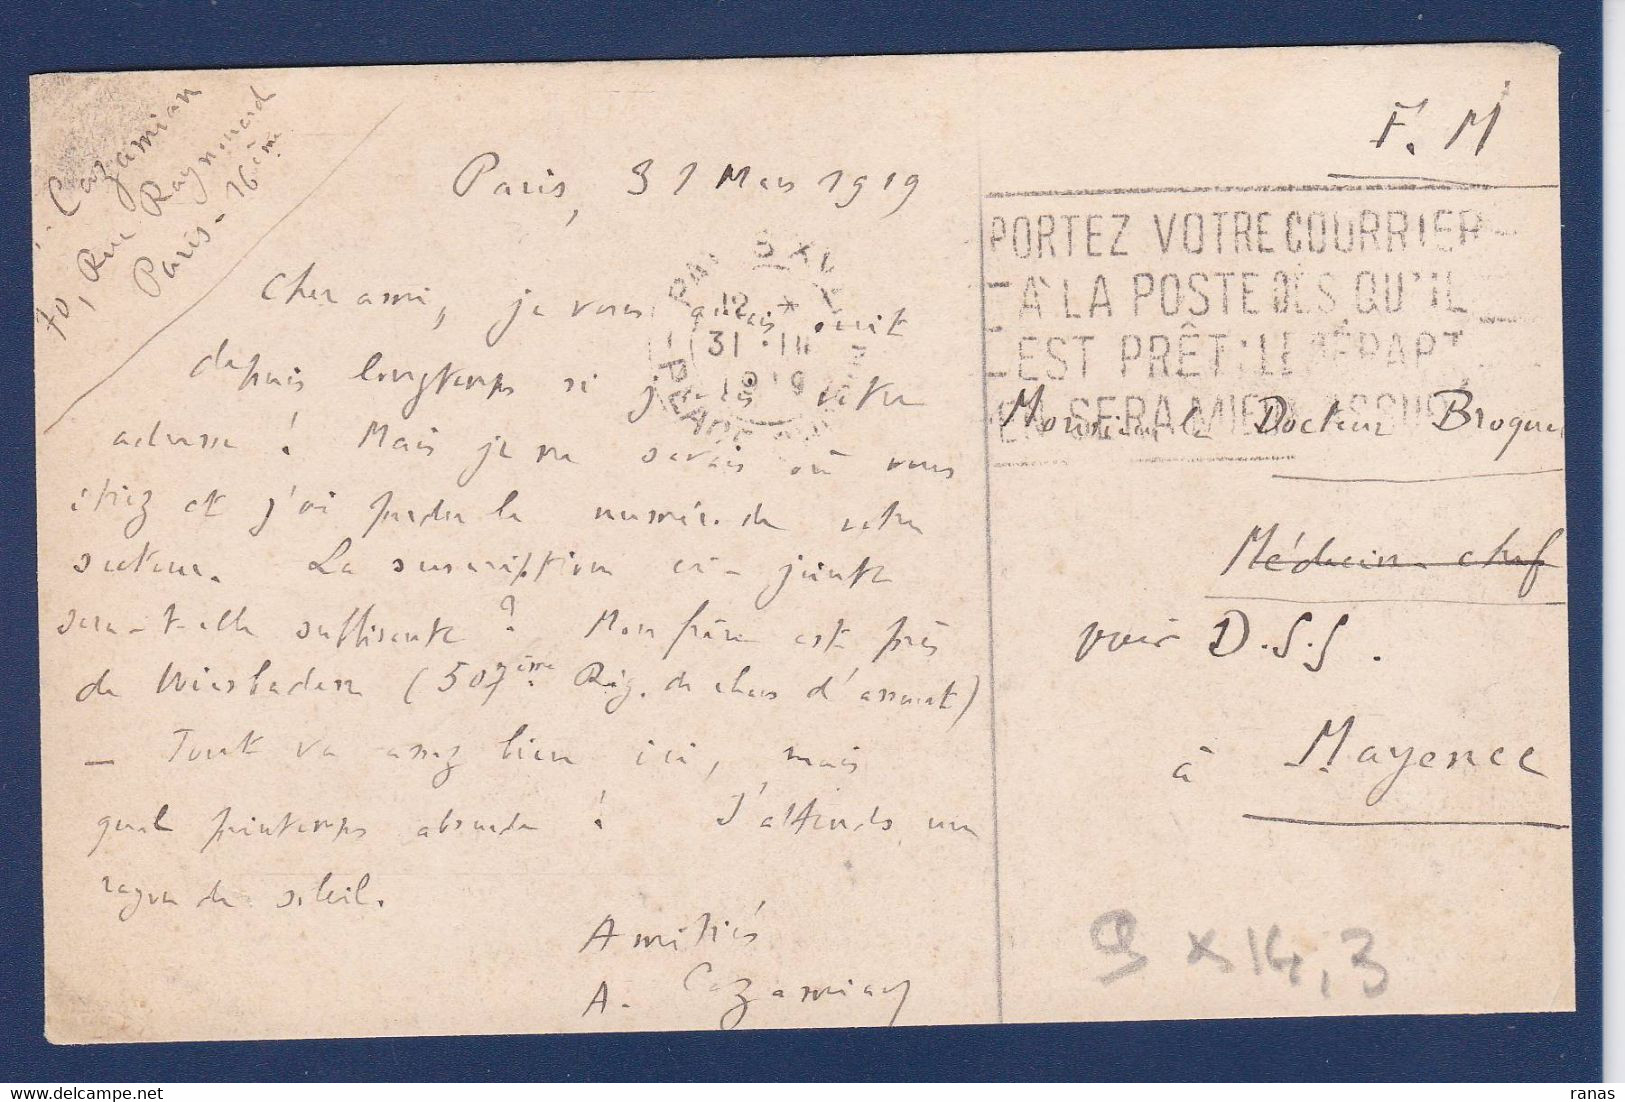 A. Cazamian
70, Rue Raynouard
Paris - 16ème
Paris, 31 Mars 1919
Cher ami, je vous aurais écrit
depuis longtemps si j'avais votre
adresse ! Mais je ne savais où vous
étiez et j'ai perdu le numéro de votre
secteur. La suscription ci-jointe
sera-t-elle suffisante ? Mon frère est près
de Wiesbaden (507ème Rég. de chars d'assaut)
- Tout va assez bien ici, mais
quel printemps absurde ! J'attends un
rayon de soleil.
Amitiés
A. Cazamian
12 *
31 · III
1919
F. M
PORTEZ VOTRE COURRIER
A LA POSTE DÈS QU'IL
EST PRÊT : LE DÉPART
EN SERA MIEUX ASSURÉ
Monsieur le Docteur Broque
Médecin-chef
voir D.S.S.
à Mayence
9 x 14,3
ranas